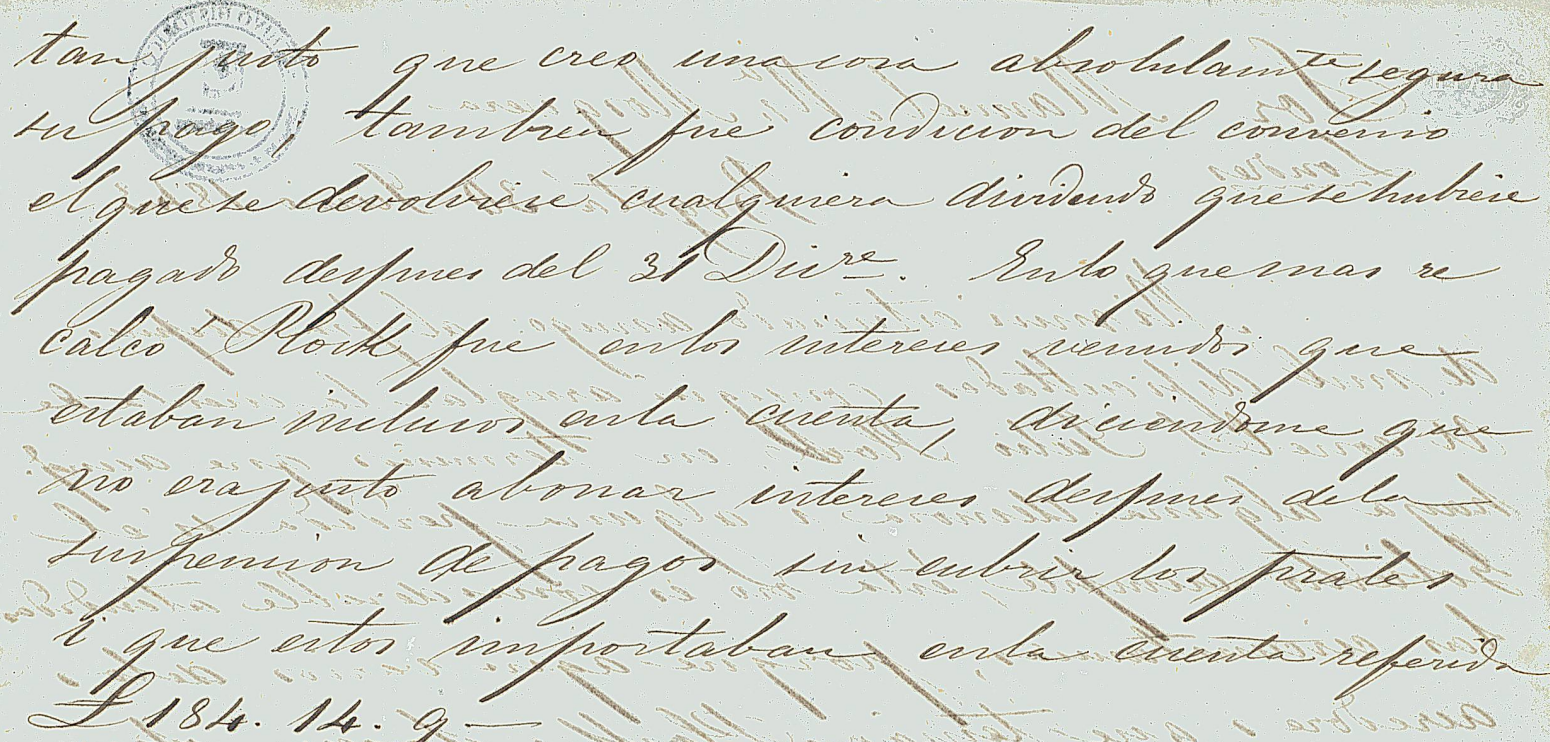 tan justo que creo una cosa absolutamte segura
su pago, tambien fue condicion del convenio
el que se devolviese cualquiera dividendo que se hubiese
pagado despues del 31 Divre. En lo que mas re
calco Plock fue en los intereses venidos que
estaban inclusos en la cuenta, diciendome que
no era justo abonar intereses despues de la
suspension de pagos sin cubrir los prales
i que estos importaban en la cuenta referida
£ 184. 14. 9—